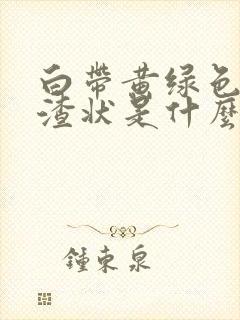 白带黄绿色
渣状是什麼
鍾東泉